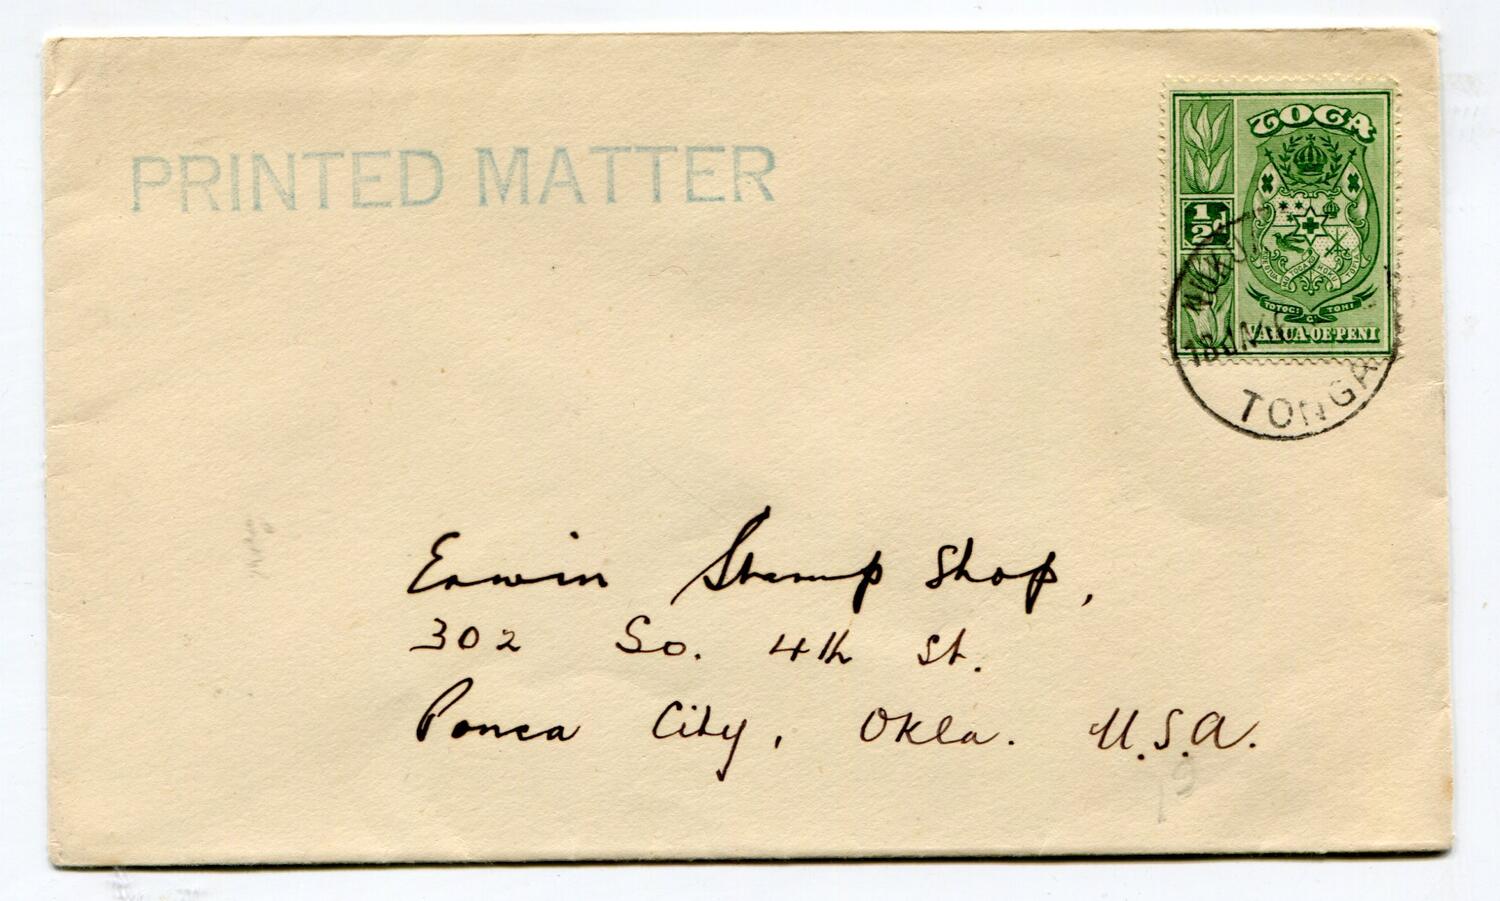 PRINTED MATTER
TOGA
1/2d
TOTOGI
G
TONI
VALUA·OE·PENI
TONGA
Erwin Stamp Shop,
302 So. 4th St.
Ponca City, Okla. U.S.A.